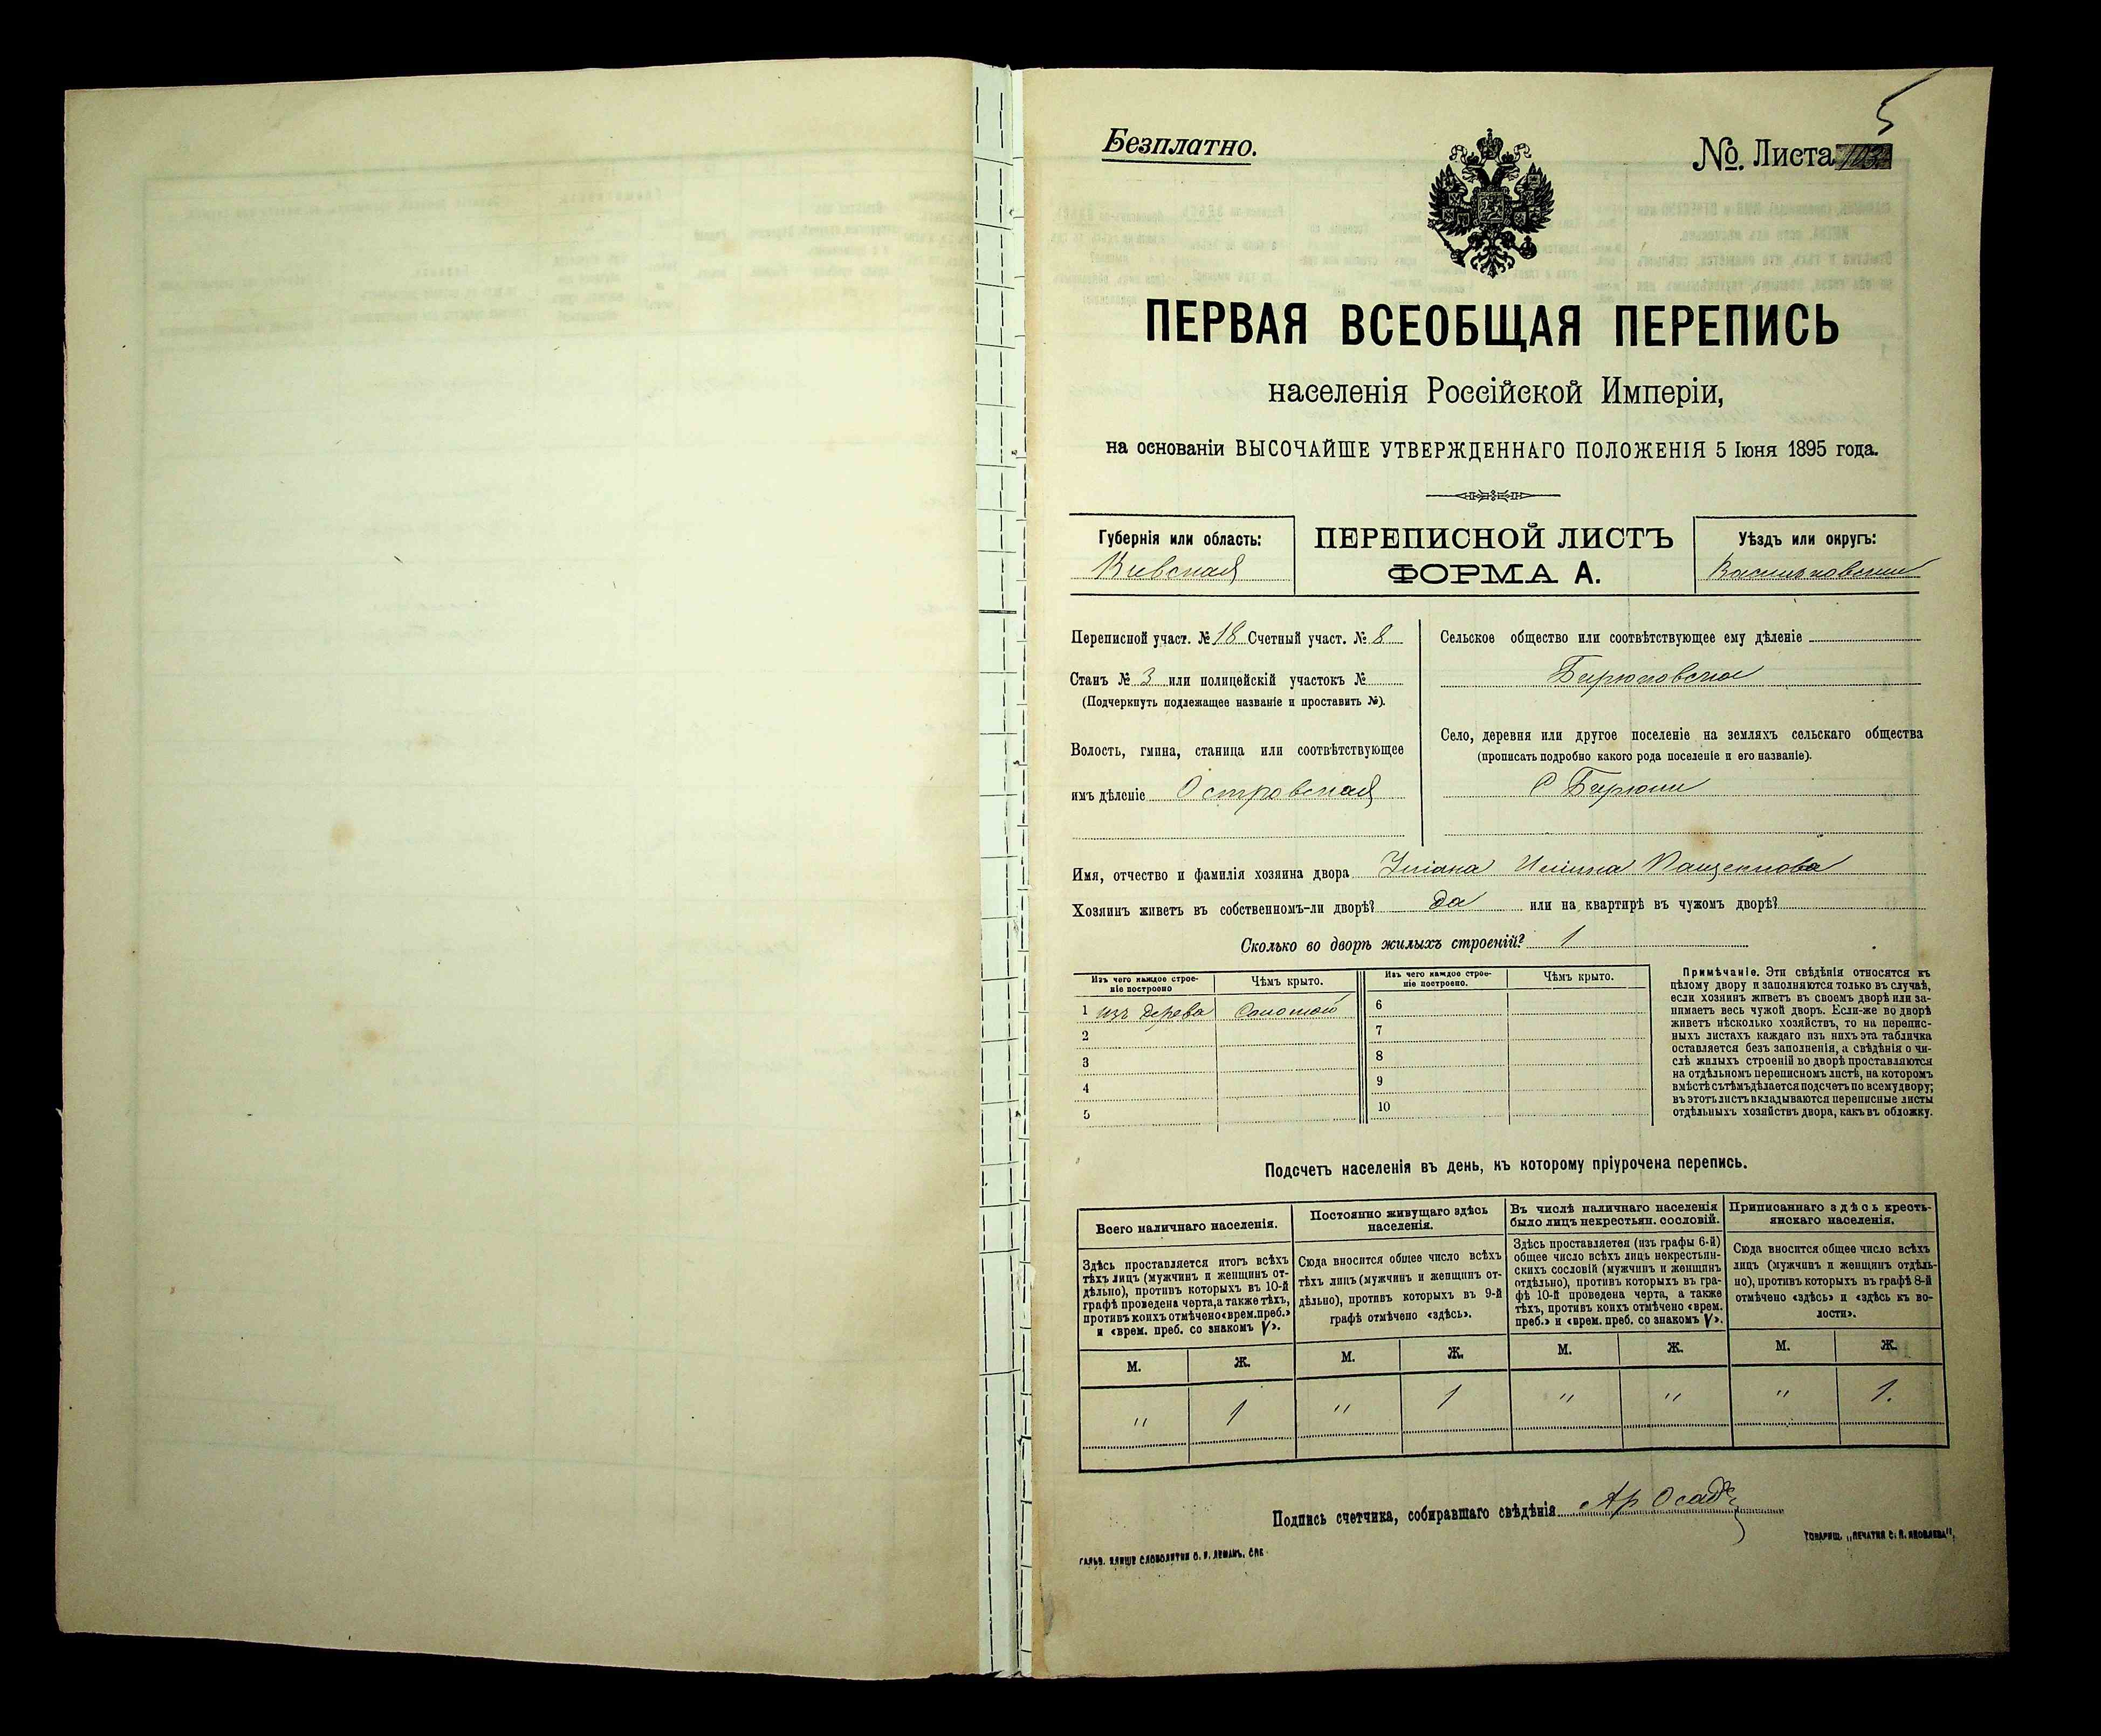 5
Безплатно.
№ Листа
ПЕРВАЯ ВСЕОБЩАЯ ПЕРЕПИСЬ
населенія Россійской Имперіи,
на основаніи ВЫСОЧАЙШЕ УТВЕРЖДЕННАГО ПОЛОЖЕНІЯ 5 Іюня 1895 года.
Губернія или область:
Киевская
ПЕРЕПИСНОЙ ЛИСТЪ
ФОРМА А.
Уѣздъ или округъ:
Васильковский
Переписной участ. № 18 Счетный участ. № 8
Станъ № 3 или полицейскій участокъ №
(Подчеркнуть подлежащее названіе и проставить №).
Волость, гмина, станица или соотвѣтствующее
имъ дѣленіе Островская
Сельское общество или соотвѣтствующее ему дѣленіе
Бирюковское
Село, деревня или другое поселеніе на земляхъ сельскаго общества
(прописать подробно какого рода поселеніе и его названіе).
С Бирюки
Имя, отчество и фамилія хозяина двора Уліана Иліина
Хозяинъ живетъ въ собственномъ-ли дворѣ? да или на квартирѣ въ чужомъ дворѣ?
Сколько во дворѣ жилыхъ строеній? 1
Изъ чего каждое строе-
ніе построено
Чѣмъ крыто.
Изъ чего каждое строе-
ніе построено.
Чѣмъ крыто.
1 изъ дерева Соломой 6
2 7
3 8
4 9
5 10
Примѣчаніе. Эти свѣдѣнія относятся къ
цѣлому двору и заполняются только въ случаѣ,
если хозяинъ живетъ въ своемъ дворѣ или за-
нимаетъ весь чужой дворъ. Если-же во дворѣ
живетъ нѣсколько хозяйствъ, то на перепис-
ныхъ листахъ каждаго изъ нихъ эта табличка
оставляется безъ заполненія, а свѣдѣнія о чи-
слѣ жилыхъ строеній во дворѣ проставляются
на отдѣльномъ переписномъ листѣ, на которомъ
вмѣстѣ съ тѣмъ дѣлается подсчетъ по всему двору;
въ этотъ листъ вкладываются переписные листы
отдѣльныхъ хозяйствъ двора, какъ въ обложку.
Подсчетъ населенія въ день, къ которому пріурочена перепись.
Всего наличнаго населенія.
Здѣсь проставляется итогъ всѣхъ
тѣхъ лицъ (мужчинъ и женщинъ от-
дѣльно), противъ которыхъ въ 10-й
графѣ проведена черта, а также тѣхъ,
противъ коихъ отмѣчено «врем. преб.»
и «врем. преб. со знакомъ V».
Постоянно живущаго здѣсь
населенія.
Сюда вносится общее число всѣхъ
тѣхъ лицъ (мужчинъ и женщинъ от-
дѣльно), противъ которыхъ въ 9-й
графѣ отмѣчено «здѣсь».
Въ числѣ наличнаго населенія
было лицъ некрестьян. сословій.
Здѣсь проставляется (изъ графы 6-й)
общее число всѣхъ лицъ некрестьян-
скихъ сословій (мужчинъ и женщинъ
отдѣльно), противъ которыхъ въ гра-
фѣ 10-й проведена черта, а также
тѣхъ, противъ коихъ отмѣчено «врем.
преб.» и «врем. преб. со знакомъ V».
Приписаннаго здѣсь кресть-
янскаго населенія.
Сюда вносится общее число всѣхъ
лицъ (мужчинъ и женщинъ отдѣль-
но), противъ которыхъ въ графѣ 8-й
отмѣчено «здѣсь» и «здѣсь къ во-
лости».
М. Ж. М. Ж. М. Ж. М. Ж.
" 1 " 1 " " " 1.
Подпись счетчика, собиравшаго свѣдѣнія
ТОВАРИЩ. „ПЕЧАТНЯ С. П. ЯКОВЛЕВА“.